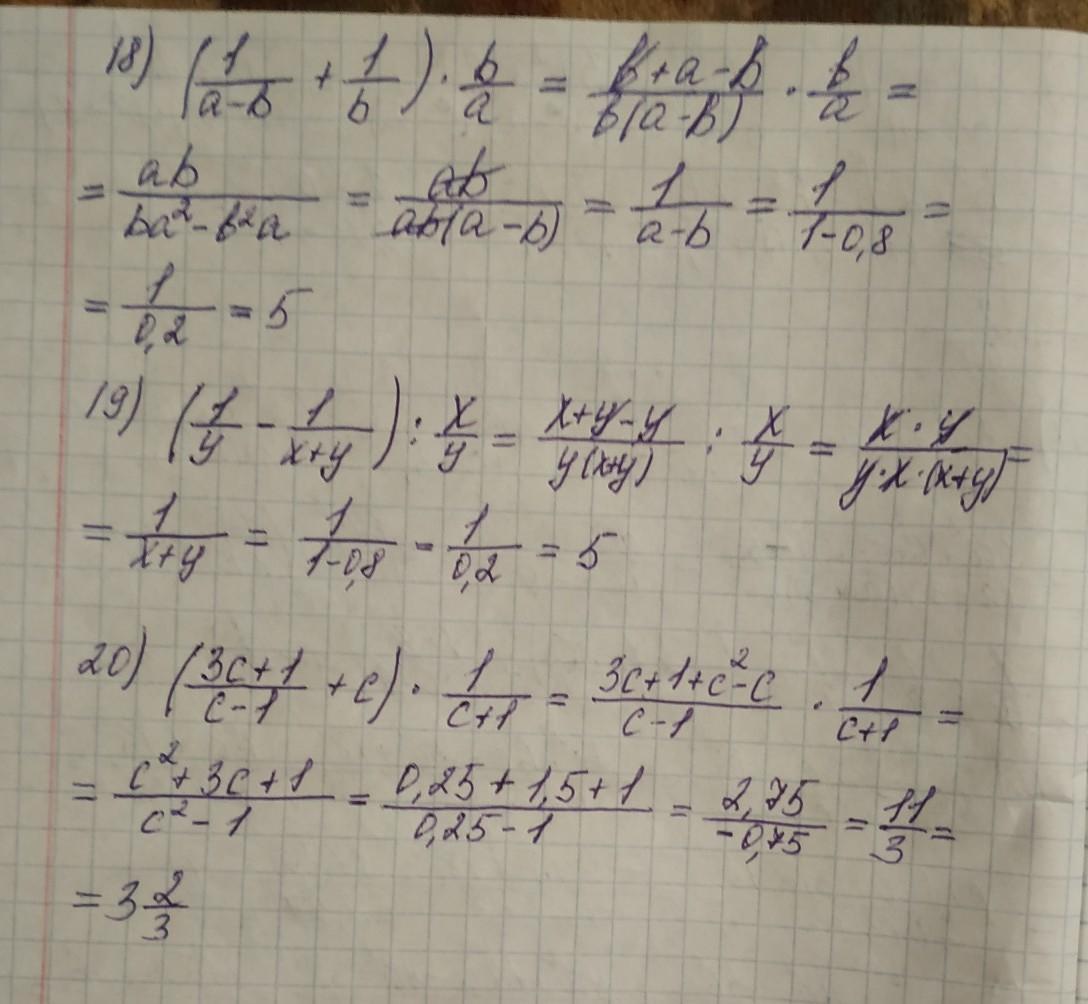 18) (1/(a-b) + 1/b) · b/a = (b+a-b)/(b(a-b)) · b/a =
= ab/(ba²-b²a) = ab/(ab(a-b)) = 1/(a-b) = 1/(1-0,8) =
= 1/0,2 = 5
19) (1/y - 1/(x+y)) : x/y = (x+y-y)/(y(x+y)) : x/y = (x·y)/(y·x·(x+y)) =
= 1/(x+y) = 1/(1-0,8) - 1/0,2 = 5
20) ((3c+1)/(c-1) + c) · 1/(c+1) = (3c+1+c²-c)/(c-1) · 1/(c+1) =
= (c²+3c+1)/(c²-1) = (0,25+1,5+1)/(0,25-1) = 2,75/-0,75 = 11/3 =
= 3 2/3